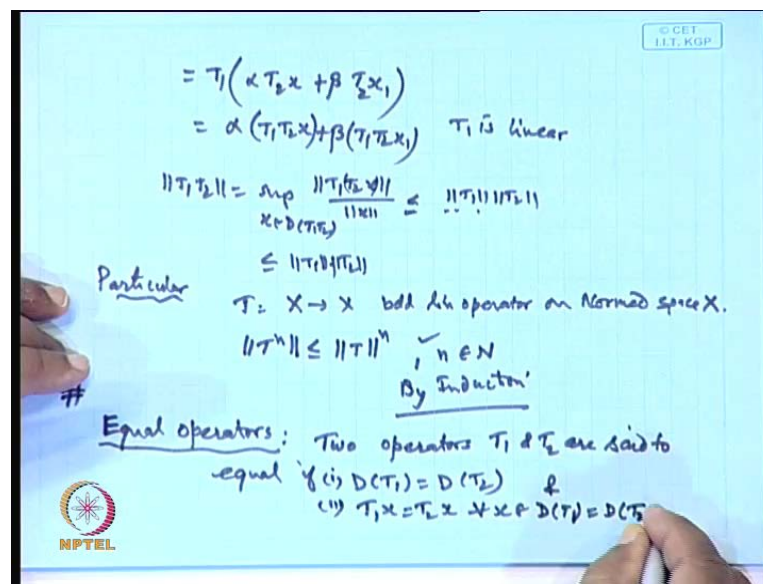 © CET
I.I.T. KGP
= T₁(α T₂x + β T₂x₁)
= α (T₁T₂x) + β(T₁T₂x₁) T₁ is linear
||T₁T₂|| = sup x∈D(T₁T₂) ||T₁(T₂x)|| / ||x|| ≤ ||T₁|| ||T₂||
≤ ||T₁|| ||T₂||
Particular
T: X → X bdd lin operator on Normed space X.
||Tⁿ|| ≤ ||T||ⁿ , n ∈ N
By Induction
#
Equal operators: Two operators T₁ & T₂ are said to
equal if (i) D(T₁) = D(T₂) &
(ii) T₁x = T₂x ∀ x ∈ D(T₁) = D(T₂
NPTEL